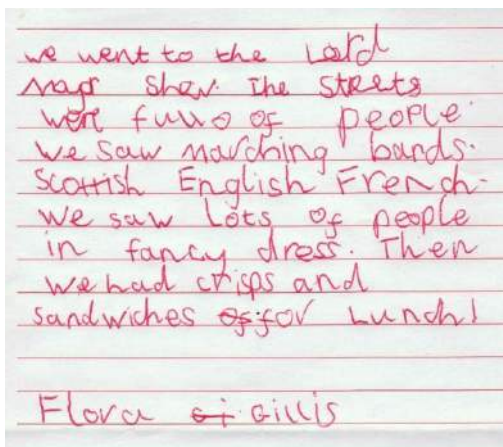 we went to the Lord
mayr Show. The streets
were fullo of people.
We saw marching bands.
Scottish English French.
We saw Lots of people
in fancy dress. Then
we had crisps and
sandwiches for Lunch!
Flora Gillis